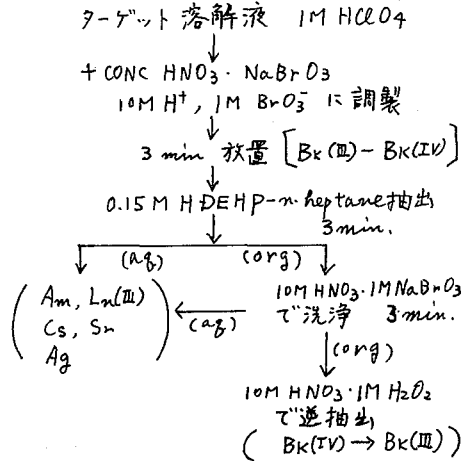 ターゲット溶解液 1M HClO4
+CONC HNO3・NaBrO3
10M H+, 1M BrO3- に調製
3 min 放置 [Bk(III)-Bk(IV)]
0.15M HDEHP-n-heptane抽出
3min.
(aq) (org)
Am, Ln(III)
Cs, Sn
Ag
(aq)
10M HNO3・1M NaBrO3
で洗浄 3 min.
(org)
10M HNO3・1M H2O2
で逆抽出
(Bk(IV)→Bk(III))